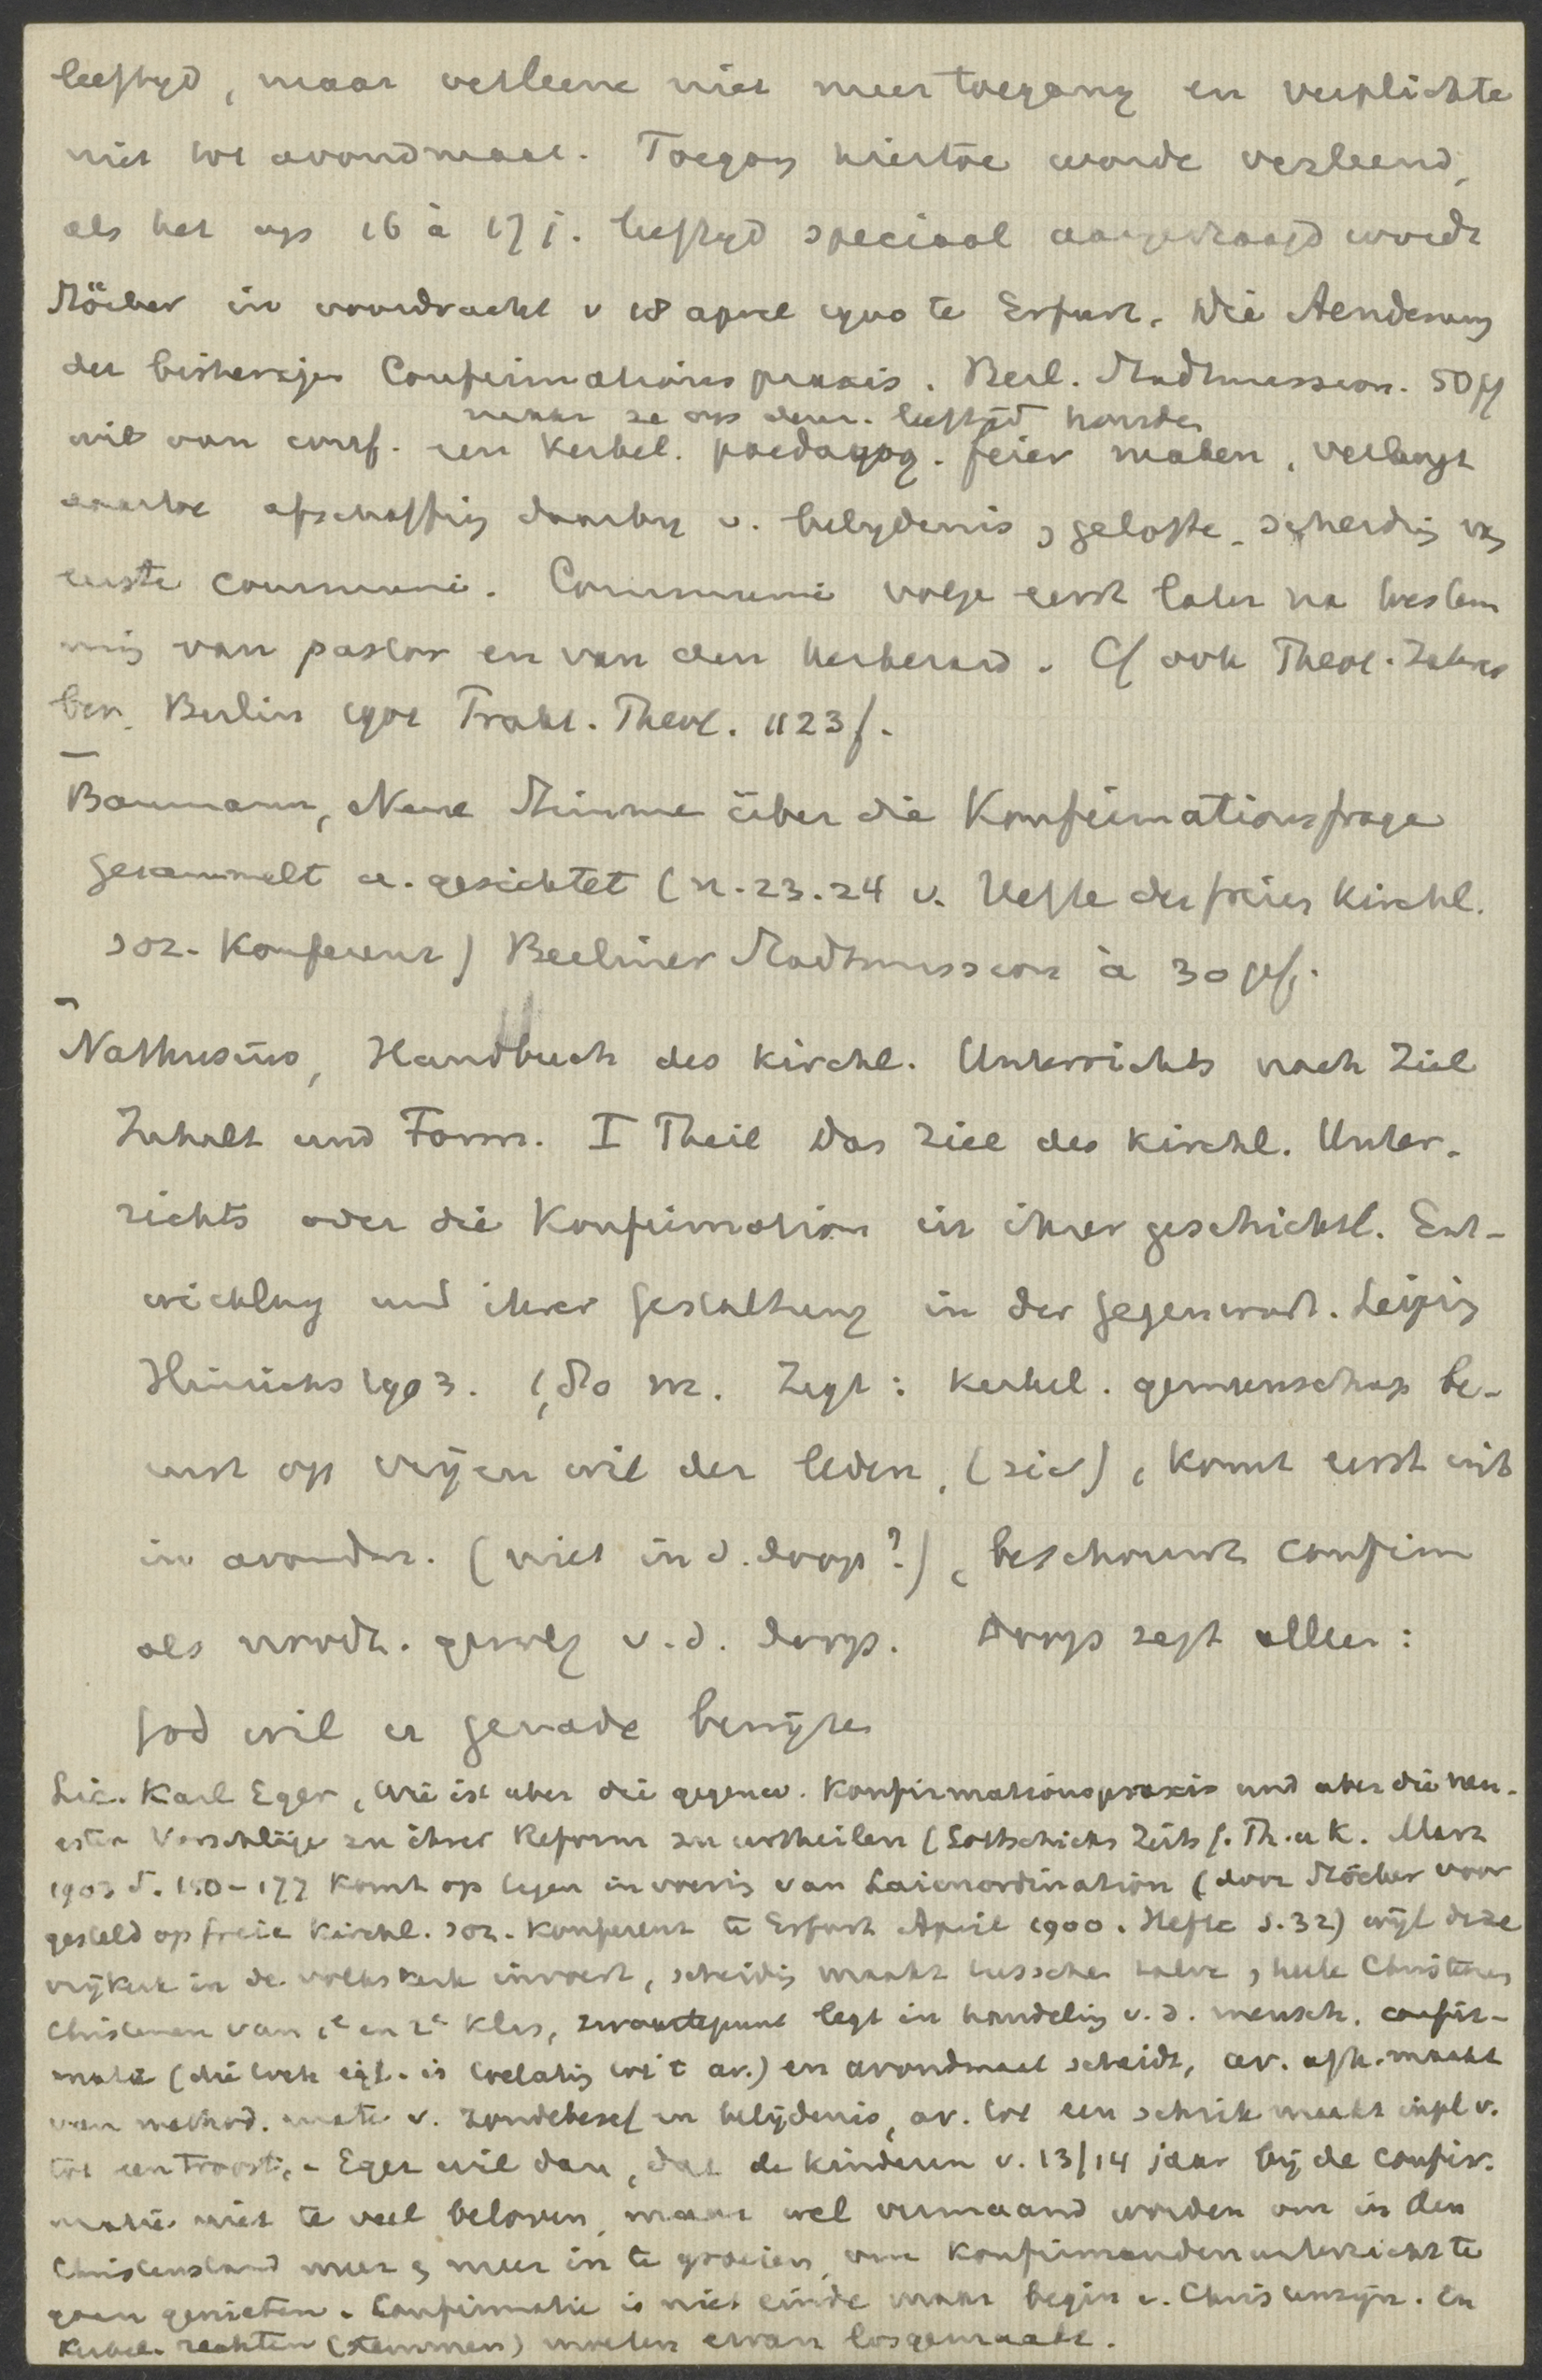 leeftyd, maar verleene niet meer toegang en verplichte
niet tot avondmaal. Toegang hiertoe worde verleend,
als het op 16 à 17 j. leeftyd speciaal aangevraagd wordt
Stöcker in voordracht v 18 april 1900 te Erfurt. Die Aenderung
der bisherigen Confirmationspraxis. Berl. Stadtmission. 50 pf
maar ze op dens. leeftijd houden
wil van conf. een kerkel. paedagog. feier maken, verlangt
daartoe afschaffing daarby v. belydenis, gelofte, scheiding van
eerste communie. Communie volge eerst later na toestem
ming van pastor en van den kerkeraad. Cf ook Theol. Jahres
ber. Berlin 1901 Prakt. Theol. 1123 f.
Baumann, Neue Stimmen über die Konfirmationsfrage
gesammelt u. gesichtet (n. 23. 24 v. Hefte der freien Kirchl.
soz. Konferenz) Berliner Stadtmission à 30 pf.
Nathusius, Handbuch des kirchl. Unterrichts nach Ziel
Inhalt und Form. I Theil Das Ziel des kirchl. Unter-
richts oder die Konfirmation in ihrer geschichtl. Ent-
wicklung und ihrer Gestaltung in der Gegenwart. Leipzig
Hinrichs 1903. M. Zegt: kerkel. gemeenschap be-
rust op vrijen wil der leden, (sic), komt eerst uit
in avondm. (niet in d. doop?), beschouwt confirm
als noodz. gevolg v. d. doop. Doop zegt alleen:
God wil er genade bewijzen
Lic. Karl Eger, Wie ist über die gegenw. Konfirmationspraxis und über die neu-
esten Vorschläge zu ihrer Reform zu urtheilen (Gottschicks Zeits f. Th. u K. Marz
1903 S. 150-177 Komt op tegen invoering van Laienordination (door Stöcker voor
gesteld op freie Kirchl. soz. Konferenz te Erfurt April 1900. Hefte S. 32) wijl deze
vrijkerk in de volkskerk invoert, scheiding maakt tusschen halve, heele Christenen
Christenen van 1e en 2e klas, zwaartepunt legt in handeling v. d. mensch, confir-
matie (die toch eigl. is toelating tot 't av.) en avondmaal scheidt, av. afh. maakt
van method. mate v. zondebesef en belijdenis, av. tot een schrik maakt inpl v.
tot een troost. - Eger wil dan, dat de kinderen v. 13/14 jaar bij de confir-
matie niet te veel beloven, maar wel vermaand worden om in den
Christenstand meer & meer in te groeien, om Konfirmandenunterricht te
gaan genieten. Confirmatie is niet einde maar begin v. Christenzijn. En
kerkel. rechten (stemmen) moeten ervan losgemaakt.